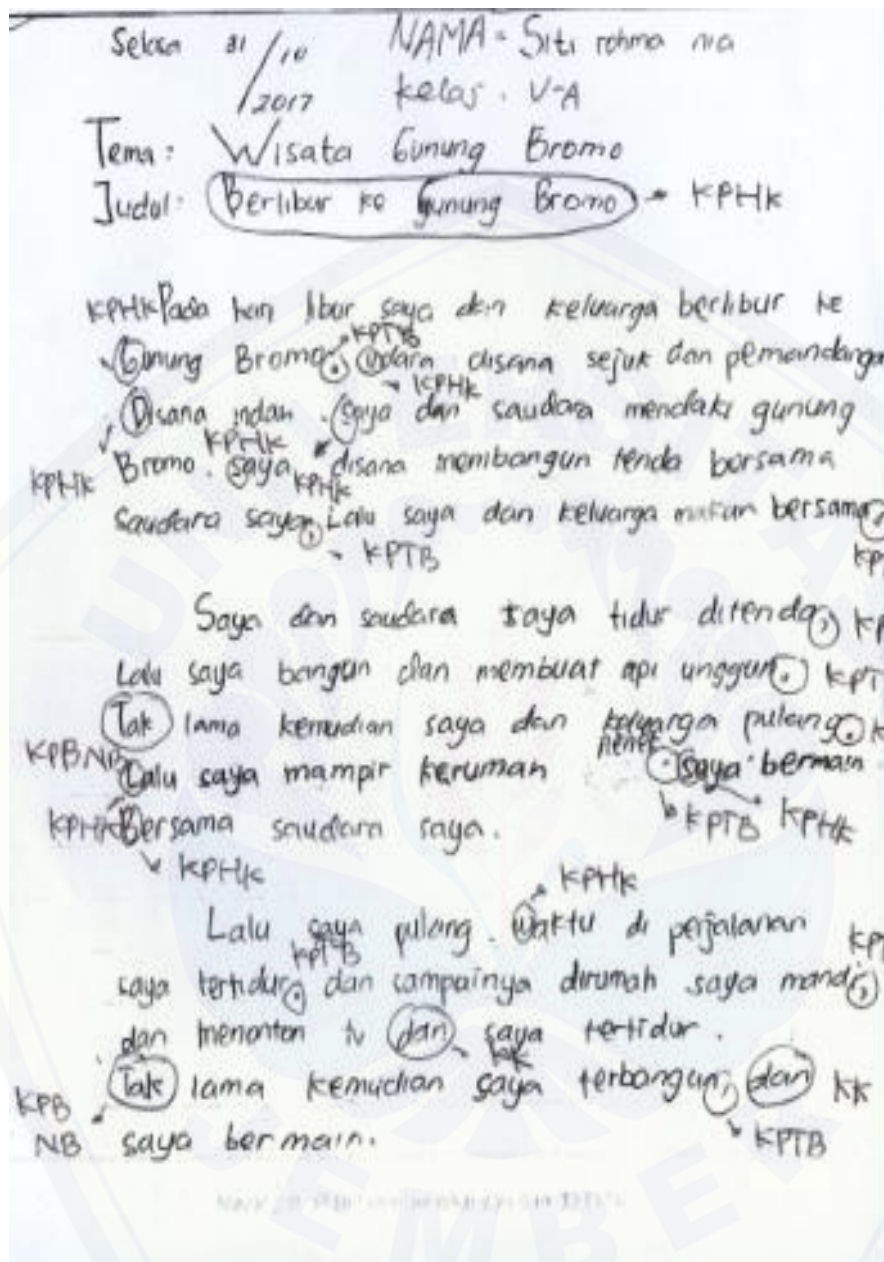 Selasa 31/10/2017 NAMA = Siti rohma nia
Kelas . V-A
Tema : Wisata Gunung Bromo
Judul : Berlibur ke gunung Bromo KPHK
KPHK Pada hari libur saya dan keluarga berlibur ke
KPTB
Gunung Bromo. Udara disana sejuk dan pemandangan
KPHK
Disana indah. Saya dan saudara mendaki gunung
KPHK
KPHK Bromo. saya disana membangun tenda bersama
KPHK
Saudara saya, Lalu saya dan keluarga makan bersama,
KPTB
Saya dan saudara saya tidur ditenda,
Lalu saya bangun dan membuat api unggun.
Tak lama kemudian saya dan keluarga pulang.
KPBNB Lalu saya mampir keruman nenek. Saya bermain
KPHK Bersama saudara saya. KPTB KPHK
KPHK
KPHK
Lalu saya pulang. Waktu di perjalanan
KPTB
saya tertidur, dan sampainya dirumah saya mandi,
dan menonton tv dan saya tertidur.
KK
Tak lama kemudian saya terbangun, dan KK
KPB
NB saya bermain. KPTB
EMBE